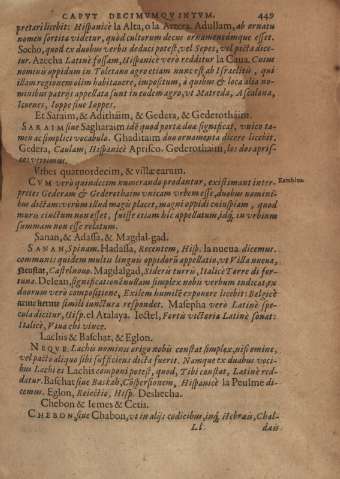 CAPVT DECIMVMQVINTVM. 449
pretari licebit: Hispanicè la Alta, o la Arcera. Adullam, ab ornatu
nomen sortita videtur, quòd cultorum decus ornamentúmque esset.
Socho, quod ex duobus verbis deduci potest, vel Sepes, vel pacta dice-
tur. Azecha Latinè fossam, Hispanicè verò redditur la Caua. Cuius
nominis oppidum in Toletano agro etiam nunc est, ab Israëlitis, qui
illam regionem olim habitauere, impositum, à quibus & loca alia no-
minibus patrijs appellata sunt in eodem agro, vt Maqueda, Ascalona,
Iouenes, Ioppe siue Ioppes.
Et Saraim, & Adithaim, & Gedera, & Gederothaim.
SARAIM siue Sagharaim idē quod porta dua significat, vnico ta-
men ac simplici vocabulo. Ghaditaim duo ornamenta dicere licebit.
Gedera, Caulam, Hispanicè Aprisco. Gederothaim, los dos apris-
cos vertimus.
Vrbes quatuordecim, & villæ earum.
CVM verò quindecim enumerandæ prodantur, existimant inter-
pretes Gederam & Gederothaim vnicam vrbem esse, duobus nomini-
bus dictam: verùm illud magis placet, magni oppidi cuiuspiam, quod
muris cinctum non esset, fuisse etiam hîc appellatum, idq́; in vrbium
summam non esse relatum.
Sanan, & Adassa, & Magdal-gad.
SANAN, Spinam. Hadassa, Recentem, Hisp. la nueua dicemus.
communis quidem multis linguis oppidorū appellatio, vt Villa nueua,
Neustat, Castelnouo. Magdalgad, Sideris turris, Italicè Torre di for-
tuna. Delean, significationē nullam simplex nobis verbum indicat, ex
duorum verò compositione, Exilem humilē exponere licebit: Belgicè
simili iunctura responder. Masepha verò Latinè spe-
cula dicitur, Hisp. el Atalaya. Iectel, Fortis victoria Latinè sonat:
Italicè, Vitta chi vince.
Lachis & Baschat, & Eglon.
NEQVE Lachis nominis origo nobis constat simplex, nisi omine,
vel pacto aliquo sibi sufficiens dicta fuerit. Namque ex duabus voci-
bus Lachi es Lachis componi potest, quod, Tibi constat, Latinè red-
datur. Baschat siue Baskab, Cuspersionem, Hispanicè la Peulme di-
cemus. Eglon, Reiectio, Hisp. Deshecha.
Chebon & Iemes & Cetis.
CHEBON, siue Chabon, vt in alijs codicibus, inq́; Hebræis, Chal-
Ll daís